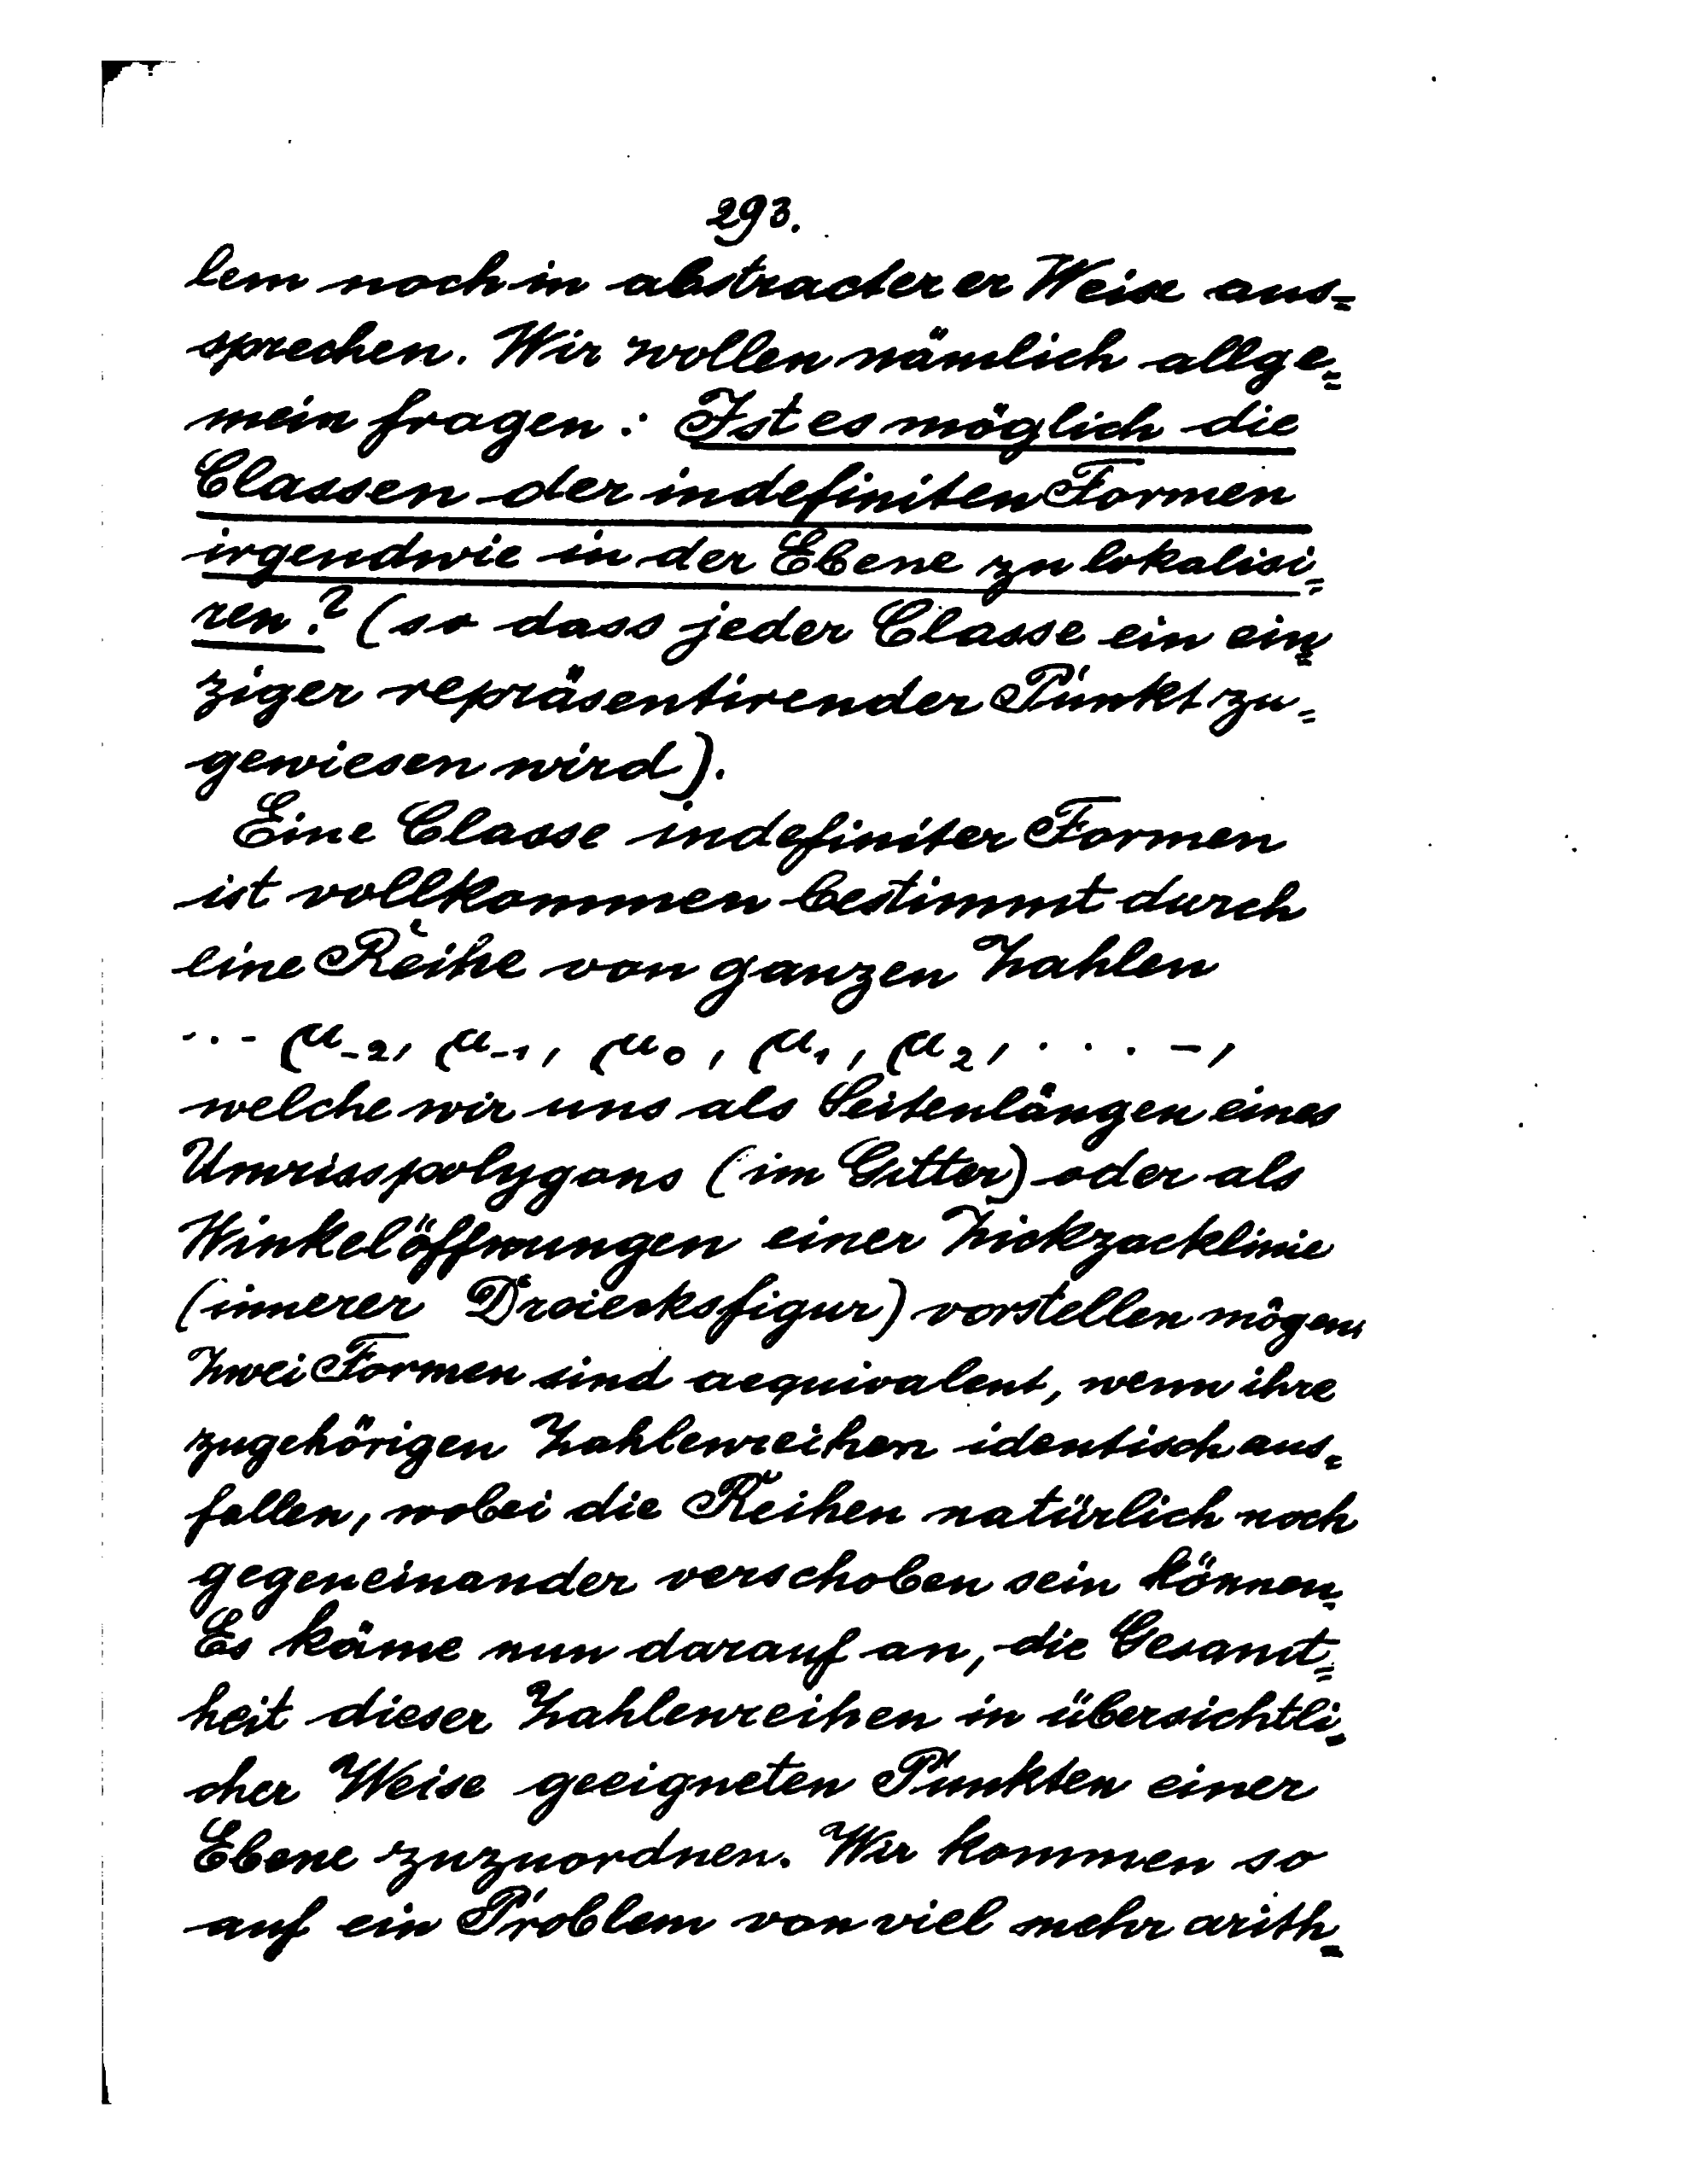 293.
lem noch in abstracterer Weise aus=
sprechen. Wir wollen nämlich allge=
mein fragen: Ist es möglich die
Classen der indefiniten Formen
irgendwie in der Ebene zu lokalisi=
ren? (so dass jeder Classe ein ein=
ziger repräsentirender Punkt zu=
gewiesen wird).
Eine Classe indefiniter Formen
ist vollkommen bestimmt durch
eine Reihe von ganzen Zahlen
... μ₋₂, μ₋₁, μ₀, μ₁, μ₂, . . . -,
welche wir uns als Seitenlängen eines
Umrisspolygons (im Gitter) oder als
Winkelöffnungen einer Zickzacklinie
(innerer Dreiecksfigur) vorstellen mögen.
Zwei Formen sind aequivalent, wenn ihre
zugehörigen Zahlenreihen identisch aus=
fallen, wobei die Reihen natürlich noch
gegeneinander verschoben sein können.
Es käme nun darauf an, die Gesamt=
heit dieser Zahlenreihen in übersichtli=
cher Weise geeigneten Punkten einer
Ebene zuzuordnen. Wir kommen so
auf ein Problem von viel mehr arith=